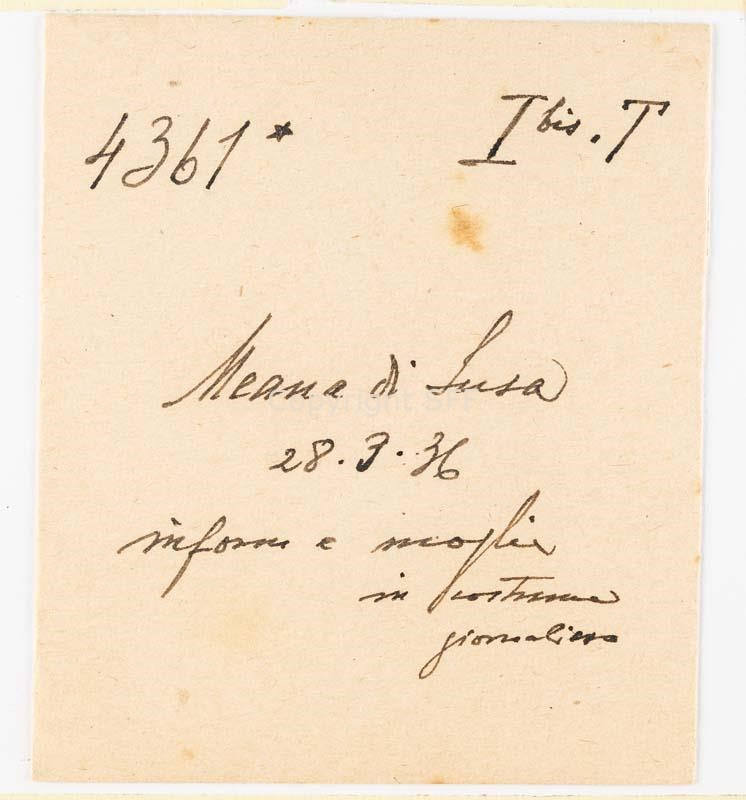 4361* I bis. T
Meana di Susa
28.3.36
inform e moglie
in costume
giornaliero